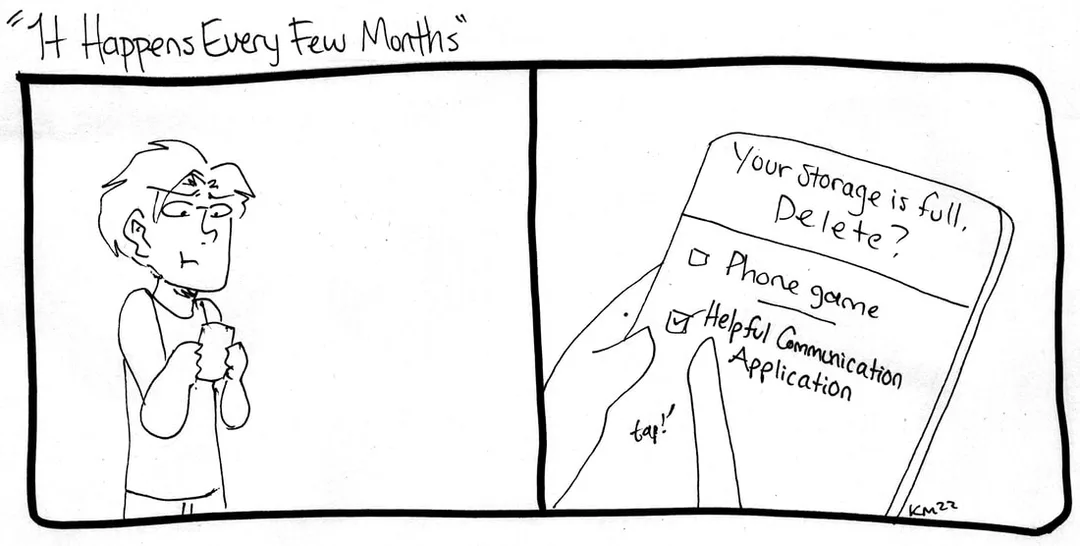 "It Happens Every Few Months"
Your Storage is full.
Delete?
Phone game
Helpful Communication
Application
tap!
KM22